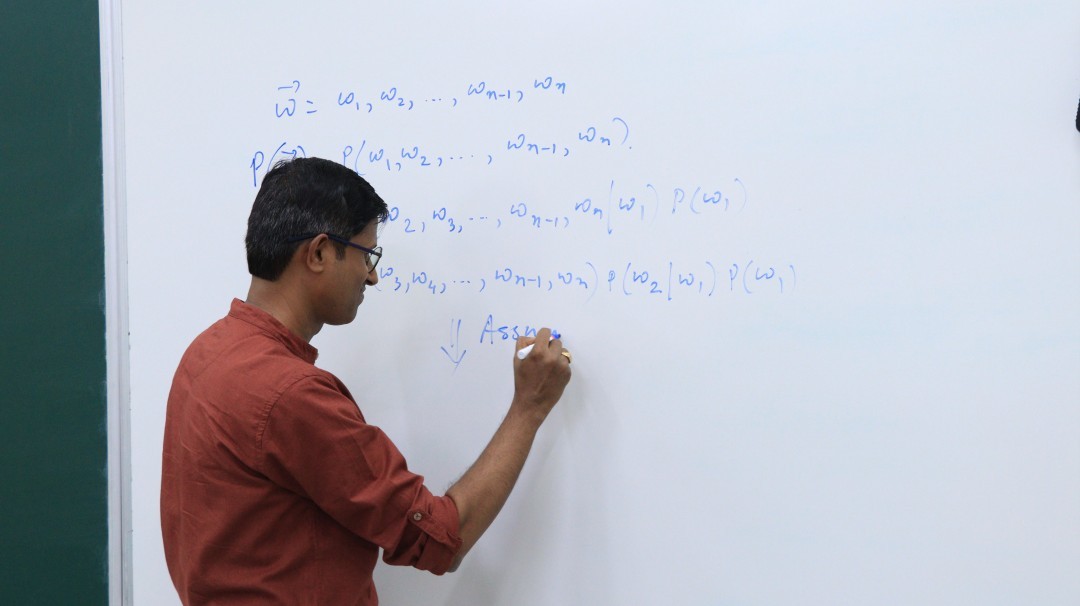 w⃗ = w₁, w₂, ..., wₙ₋₁, wₙ
P(w⃗) P(w₁, w₂, ..., wₙ₋₁, wₙ).
w₂, w₃, ..., wₙ₋₁, wₙ | w₁) P(w₁)
w₃, w₄, ..., wₙ₋₁, wₙ) P(w₂ | w₁) P(w₁)
⇓